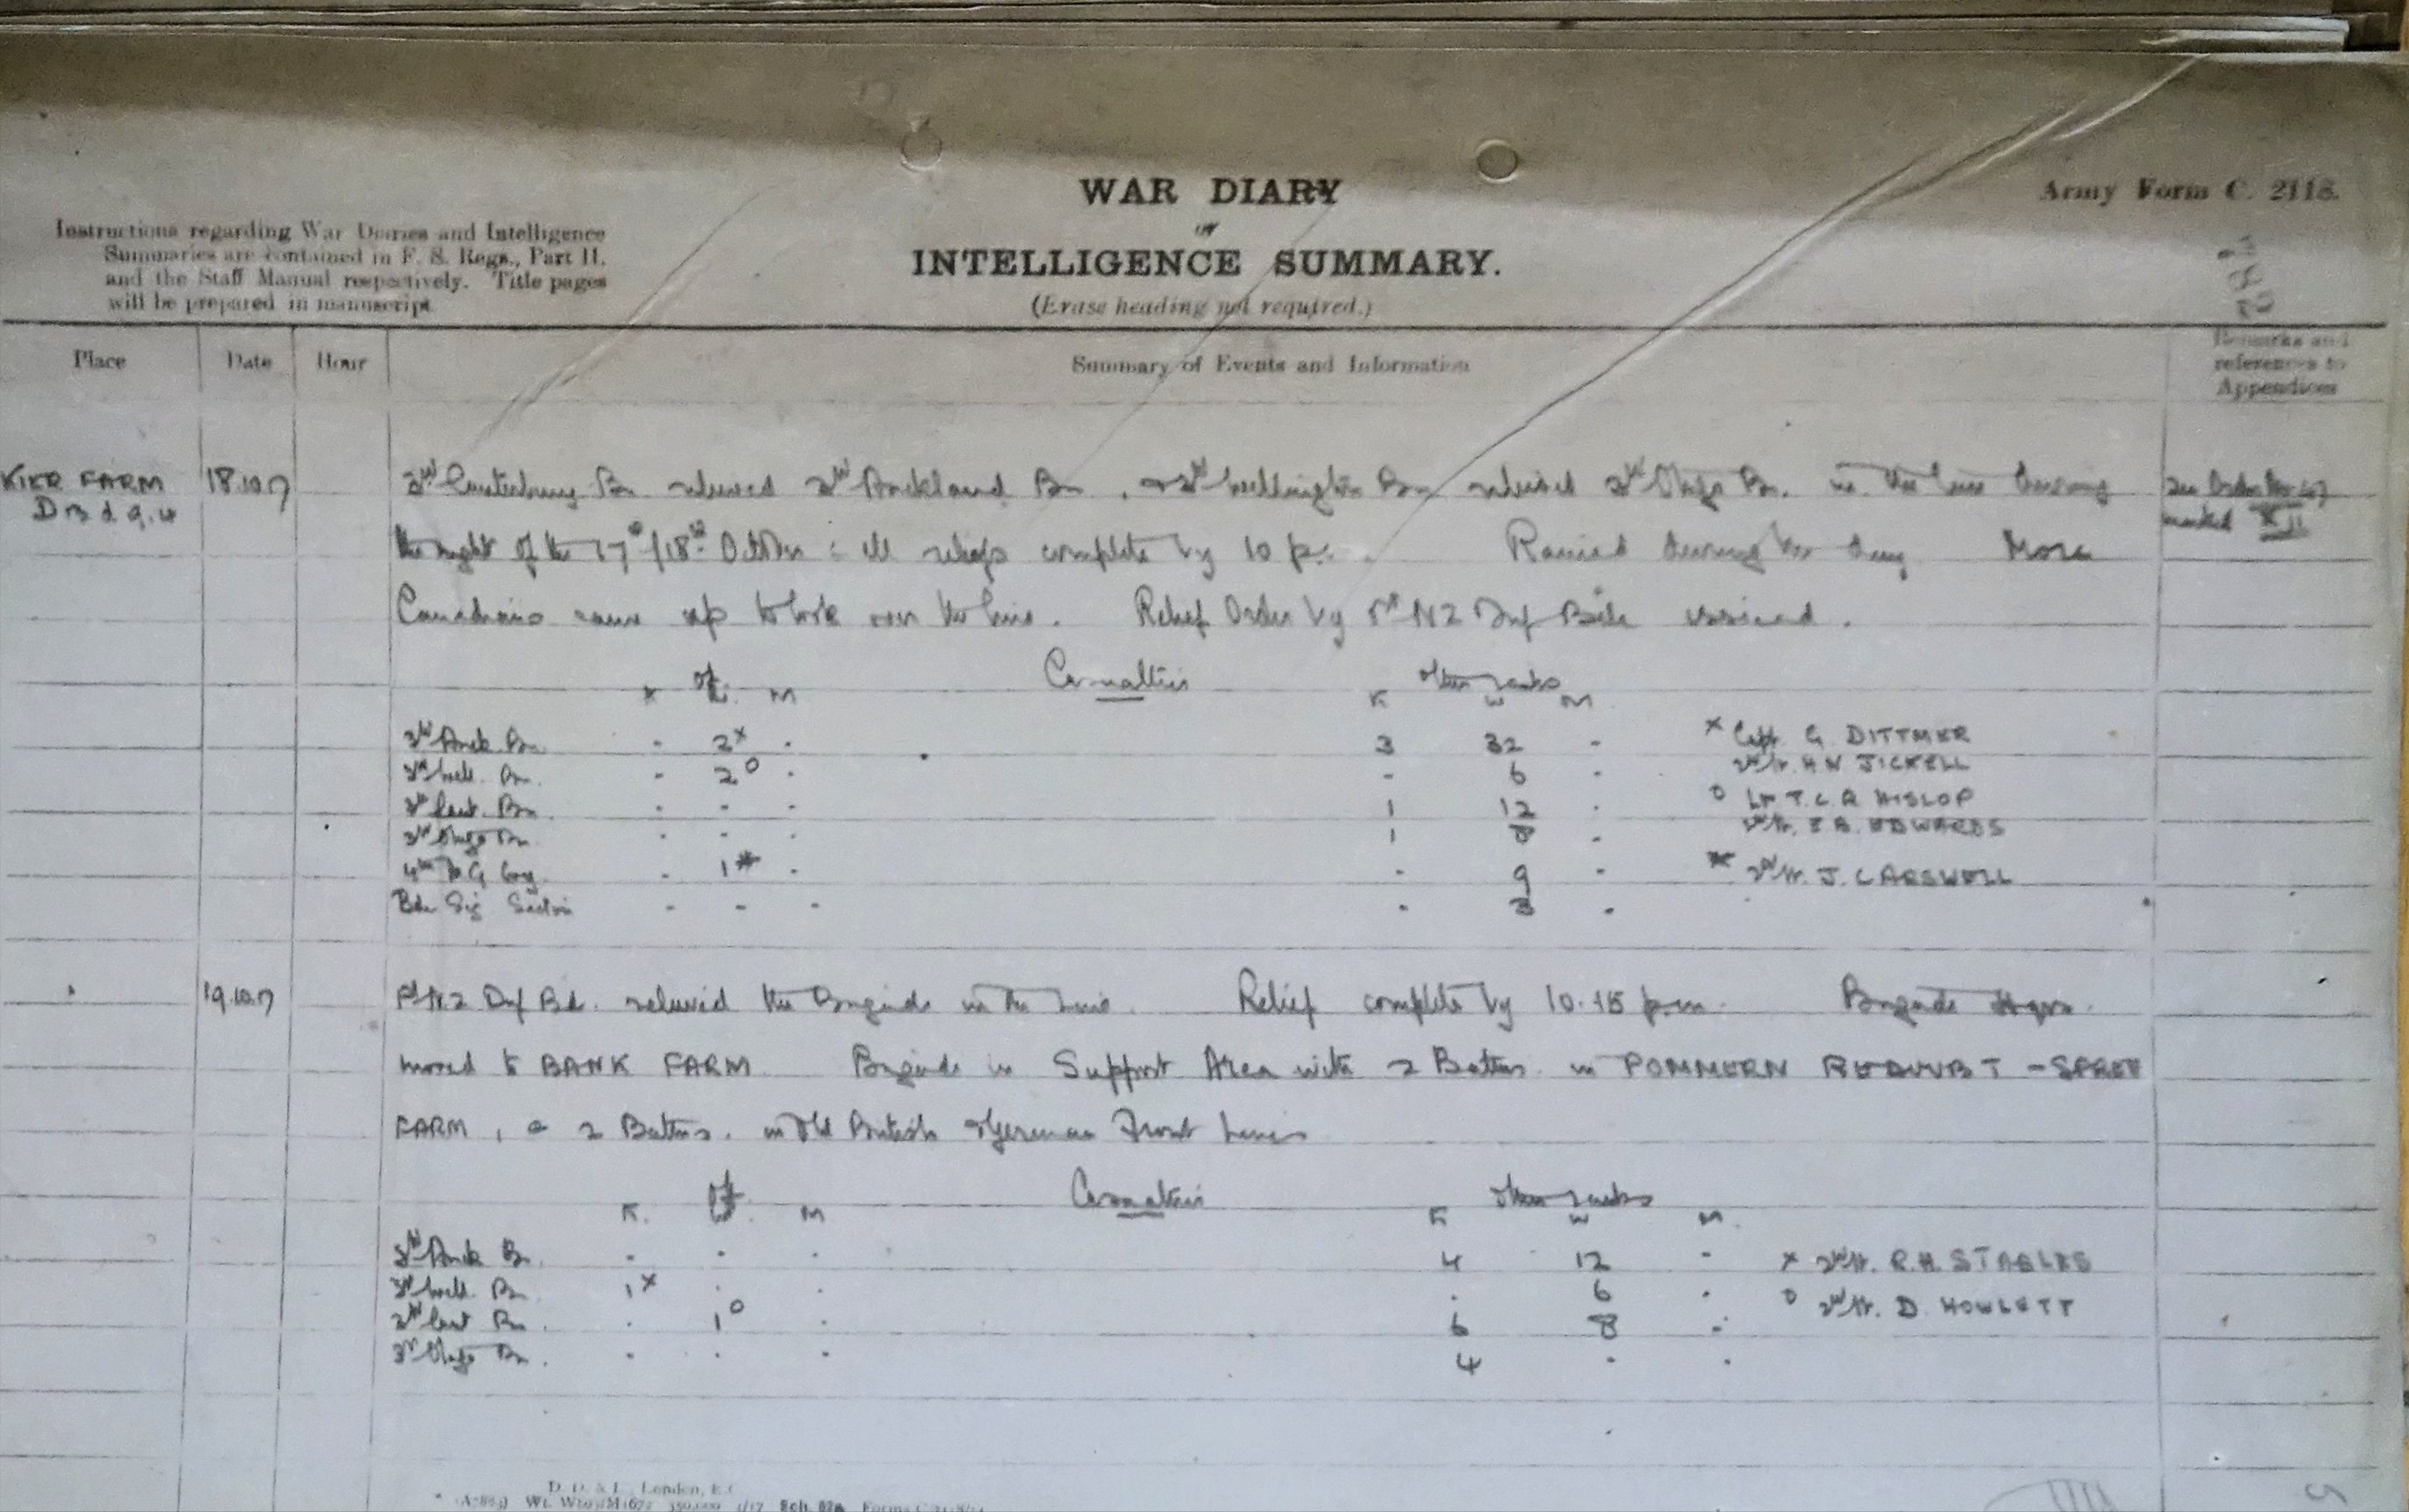 WAR DIARY
or
INTELLIGENCE SUMMARY.
(Erase heading not required.)
Army Form C. 2118.
Instructions regarding War Diaries and Intelligence
Summaries are contained in F. S. Regs., Part II.
and the Staff Manual respectively. Title pages
will be prepared in manuscript.
Place Date Hour Summary of Events and Information
Remarks and
references to
Appendices
FARM 18.10.17 3rd Canterbury Bn relieved 3rd Auckland Bn, & 3rd Wellington Bn relieved 3rd Otago Bn. in the line during
the night of the 17th/18th October: all reliefs complete by 10 p.m. Rained during the day More
Canadians came up to look over the line. Relief Order by NZ Inf Bde received.
marked
Casualties
Off. Other ranks
K W M K W M
3rd Auck. Bn. - 2x - 3 32 - x Capt. G DITTMER
3rd Well. Bn. - 2o - - 6 - 2nd Lt. H N JICKELL
3rd Cant. Bn. - - - 1 12 - o Lt T. C. A HISLOP
3rd Otago Bn - - - 1 8 - 2nd Lt. EDWARDS
4th M G Coy. - 1* - - 9 - * 2nd Lt. J. CARSWELL
Bde Sig Section - - - - 3 -
" 19.10.17 NZ Inf Bd. relieved the Brigade in the line. Relief complete by 10.15 p.m. Brigade Hqrs.
moved to BANK FARM Brigade in Support Area with 2 Battns. in POMMERN REDOUBT - SPREE
FARM, & 2 Battns. in Old British & German Front Lines
Casualties
Off. Other ranks
K. W. M K W M.
3rd Auck Bn. - - - 4 12 - x 2nd Lt. R.H. STABLES
3rd Well. Bn. 1x - - - 6 - o 2nd Lt. D. HOWLETT
3rd Cant Bn. - 1o - 6 8 -
3rd Otago Bn. - - - 4 - -
D. D. & L., London, E.C.